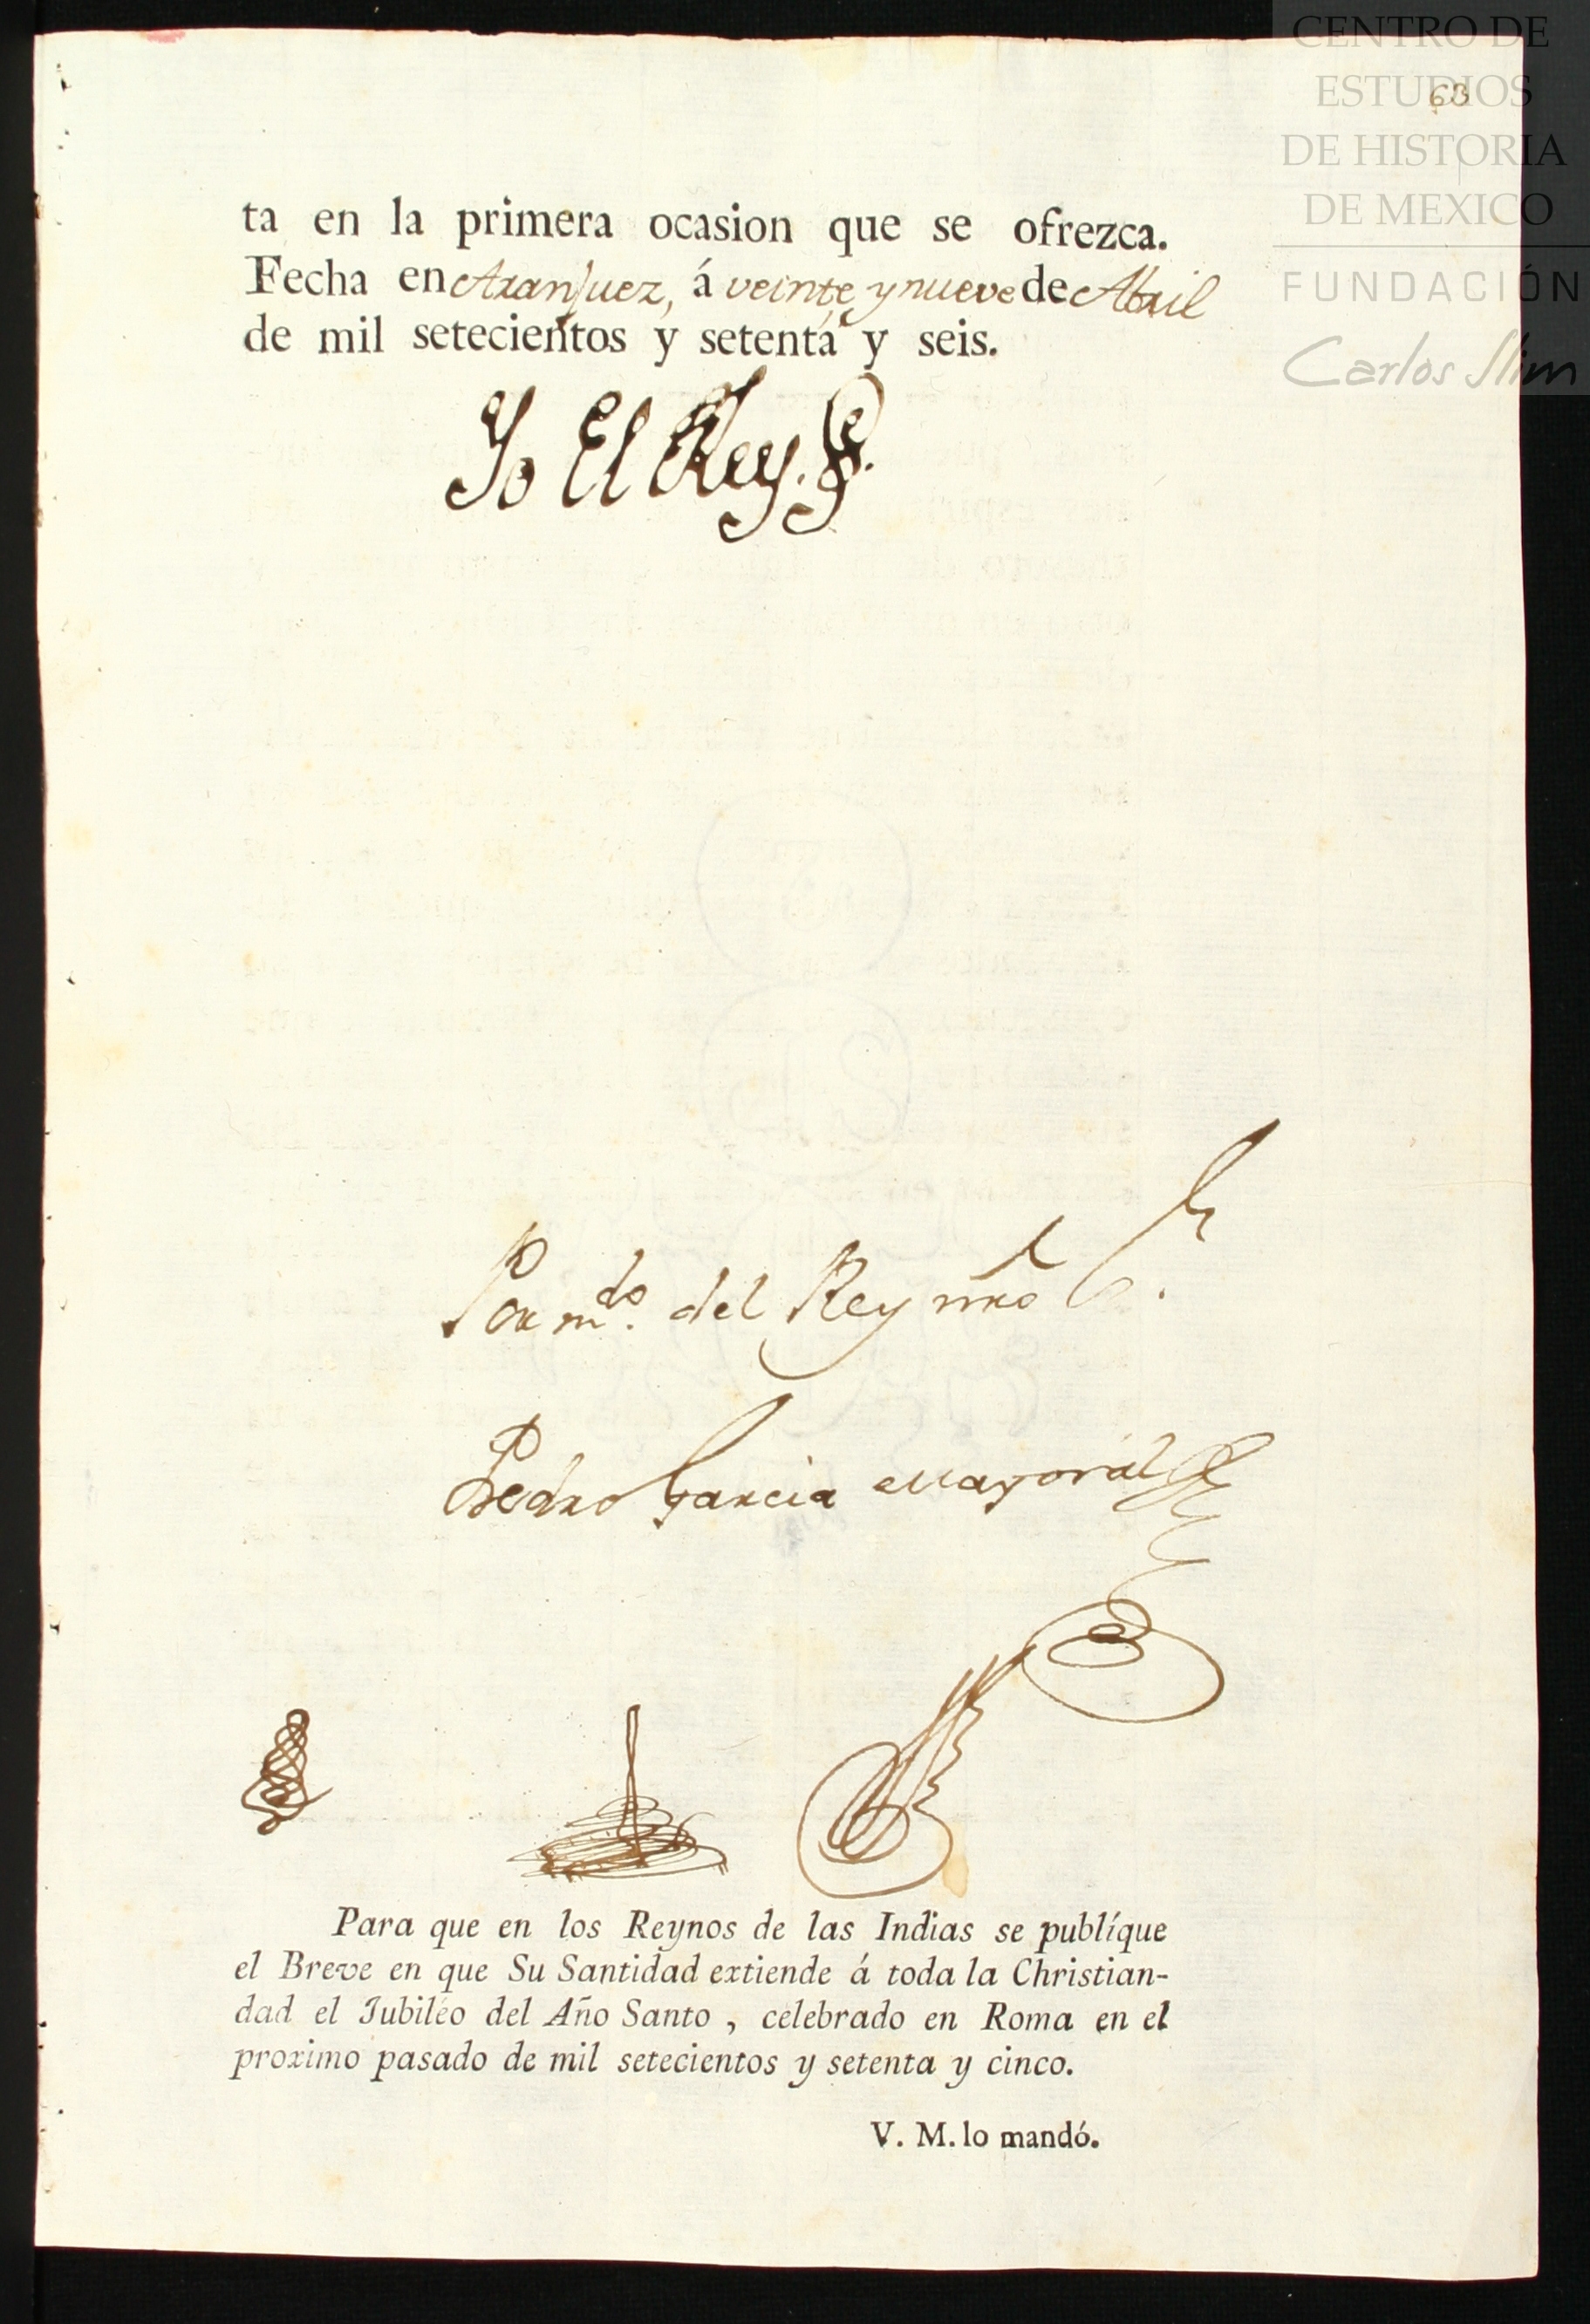 CENTRO DE
ESTUDIOS
DE HISTORIA
DE MEXICO
FUNDACIÓN
Carlos Slim
63
ta en la primera ocasion que se ofrezca.
Fecha en Aranjuez, á veinte y nueve de Abril
de mil setecientos y setenta y seis.
Yo El Rey.
Por mdo. del Rey nro S.
Pedro Garcia Mayoral
Para que en los Reynos de las Indias se publíque
el Breve en que Su Santidad extiende á toda la Christian-
dad el Jubiléo del Año Santo , celebrado en Roma en el
proximo pasado de mil setecientos y setenta y cinco.
V. M. lo mandó.